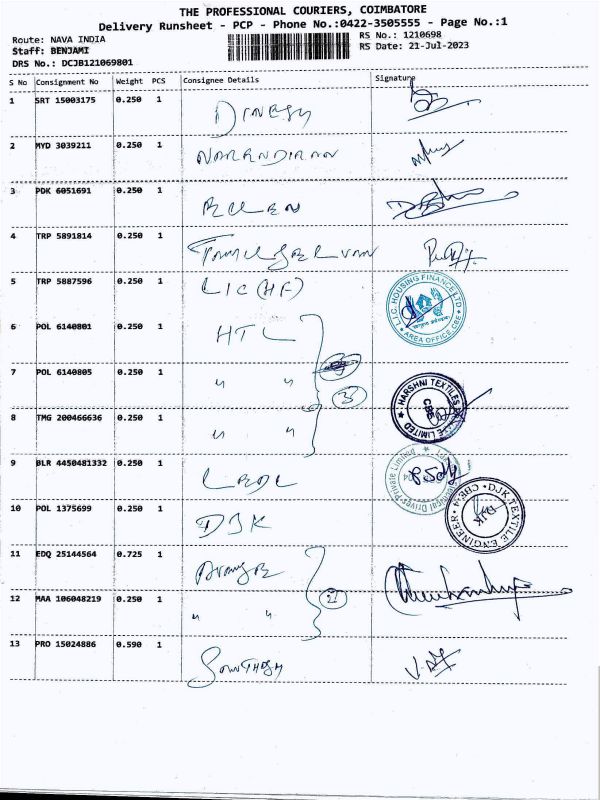 THE PROFESSIONAL COURIERS, COIMBATORE
Delivery Runsheet - PCP - Phone No.:0422-3505555 - Page No.:1
Route: NAVA INDIA RS No.: 1210698
Staff: BENJAMI RS Date: 21-Jul-2023
DRS No.: DCJB121069801
S No Consignment No Weight PCS Consignee Details Signature
1 SRT 15003175 0.250 1 DINESH
2 MYD 3039211 0.250 1
3 PDK 6051691 0.250 1
4 TRP 5891814 0.250 1
5 TRP 5887596 0.250 1 LIC(HF)
L.I.C. HOUSING FINANCE LTD
AREA OFFICE CBE
6 POL 6140801 0.250 1 HTL
7 POL 6140805 0.250 1 " "
3
HARSHNI TEXTILES PRIVATE LIMITED
CBE
8 TMG 200466636 0.250 1 " "
9 BLR 4450481332 0.250 1
Drives Private Limited
10 POL 1375699 0.250 1 DJK
DJK TEXTILE ENGINEER CBE-4
DJK
11 EDQ 25144564 0.725 1
12 MAA 106048219 0.250 1 " "
2
13 PRO 15024886 0.590 1